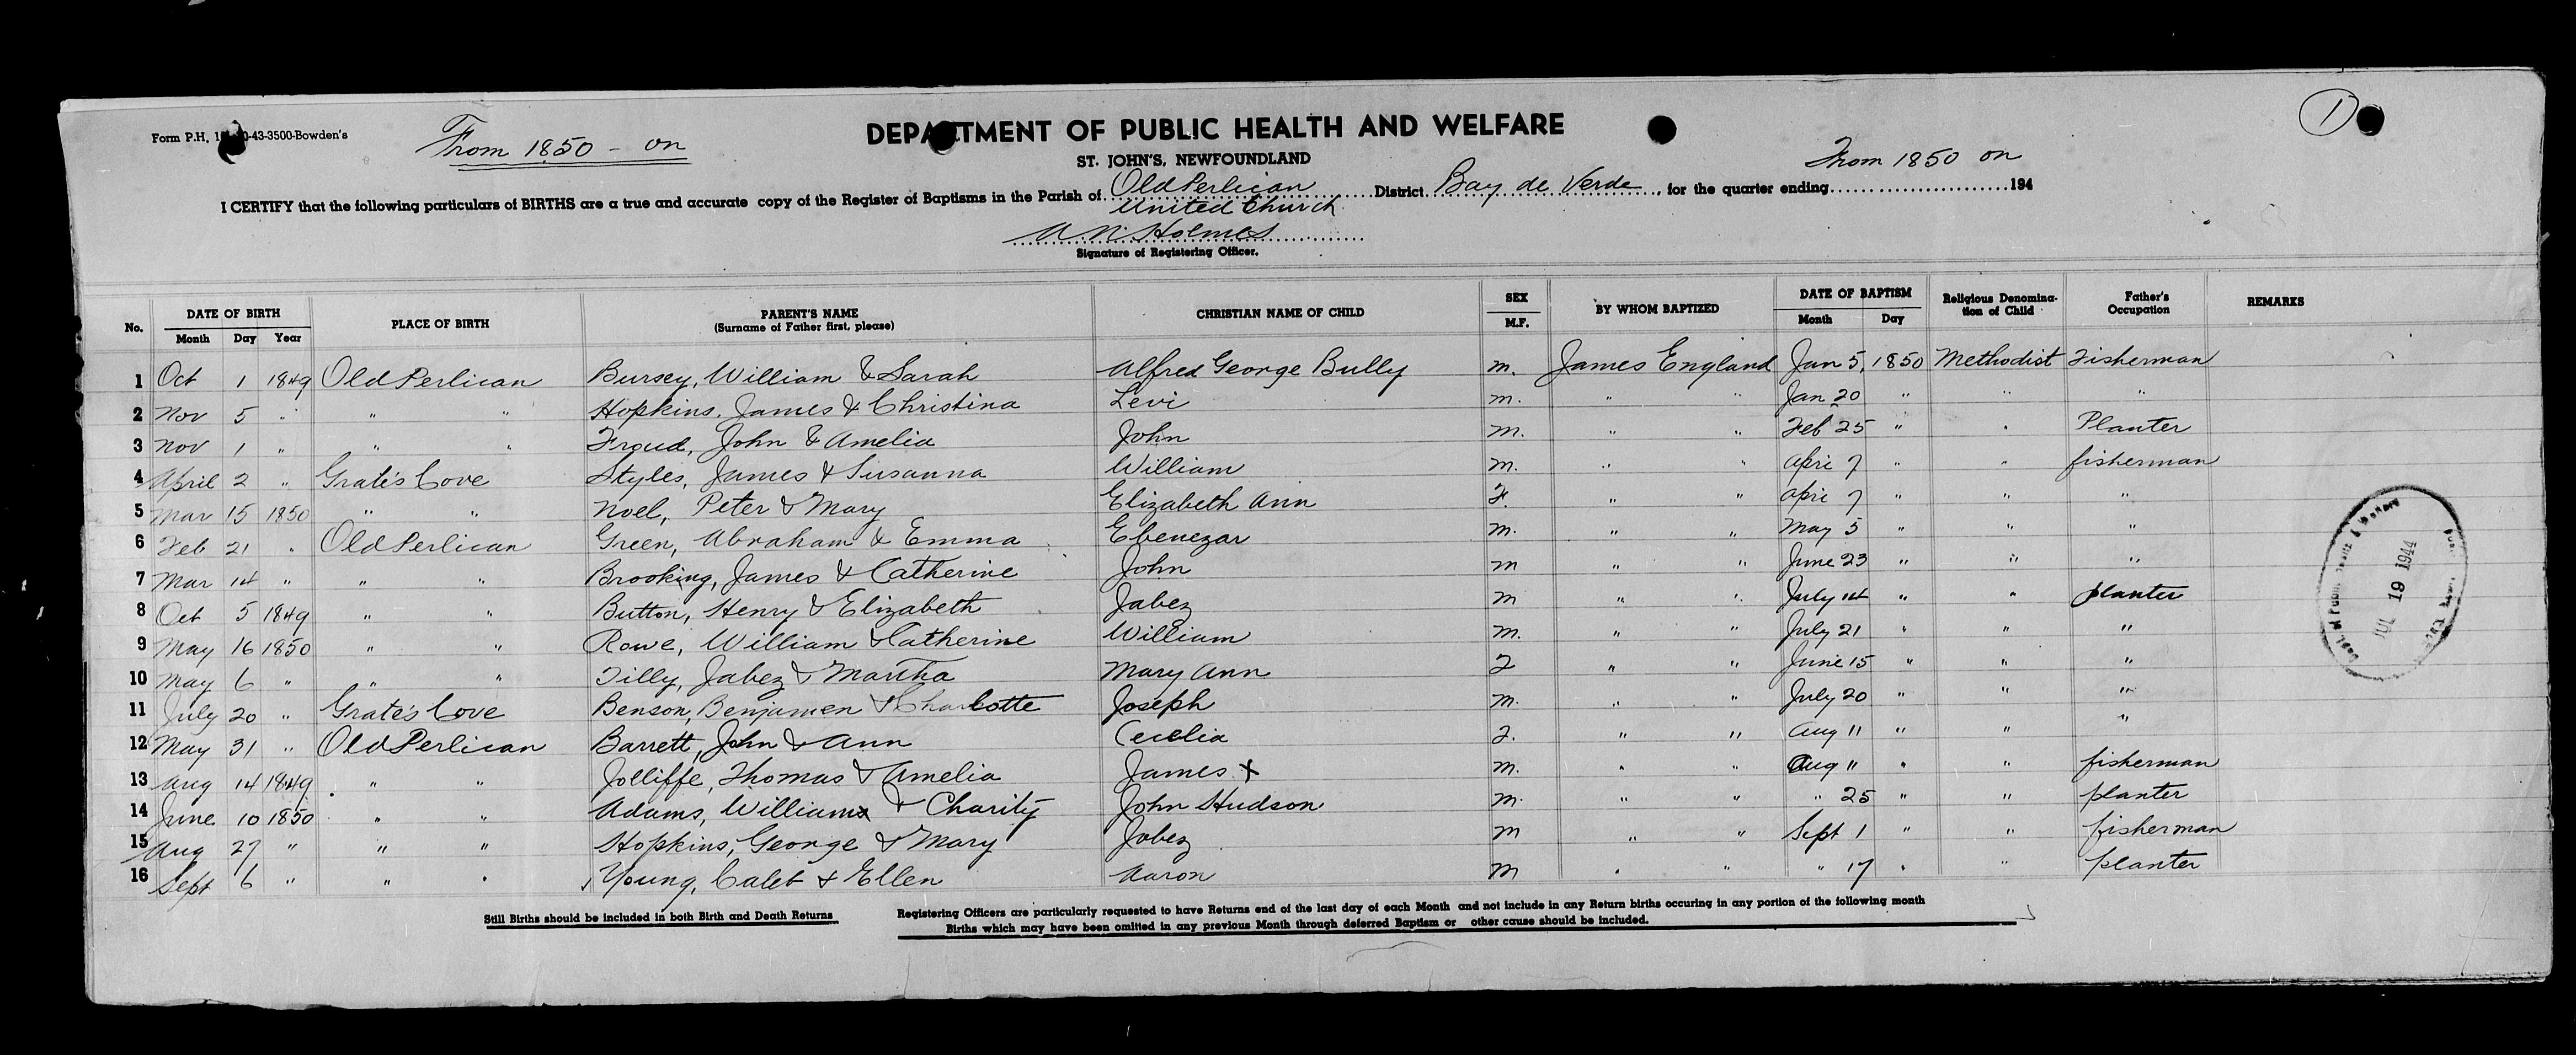 Form P.H. 1 0-43-3500-Bowden's
From 1850 - on
DEPARTMENT OF PUBLIC HEALTH AND WELFARE
1
ST. JOHN'S, NEWFOUNDLAND
From 1850 on
I CERTIFY that the following particulars of BIRTHS are a true and accurate copy of the Register of Baptisms in the Parish of Old Perlican District Bay de Verde, for the quarter ending 194
United Church
A N Holmes
Signature of Registering Officer.
No. DATE OF BIRTH PLACE OF BIRTH PARENT'S NAME CHRISTIAN NAME OF CHILD SEX BY WHOM BAPTIZED DATE OF BAPTISM Religious Denomina- Father's REMARKS
Month Day Year (Surname of Father first, please) M.F. Month Day tion of Child Occupation
1 Oct 1 1849 Old Perlican Bursey, William & Sarah Alfred George Bully m. James England Jan 5, 1850 Methodist Fisherman
2 Nov 5 " " " Hopkins, James & Christina Levi m. " " Jan 20 " " "
3 Nov 1 " " " Froud, John & Amelia John m. " " Feb 25 " " Planter
4 April 2 " Grate's Cove Styles, James & Susanna William m. " " Apri 7 " " fisherman
5 Mar 15 1850 " " Noel, Peter & Mary Elizabeth Ann F. " " Apri 7 " " "
6 Feb 21 " Old Perlican Green, Abraham & Emma Ebenezar m. " " May 5 " " "
7 Mar 14 " " " Brooking, James & Catherine John m " " June 23 " " "
8 Oct 5 1849 " " Button, Henry & Elizabeth Jabez m " " July 14 " " planter
9 May 16 1850 " " Rowe, William & Catherine William m. " " July 21 " " "
10 May 6 " " " Tilly, Jabez & Martha Mary Ann F " " June 15 " " "
11 July 20 " Grate's Cove Benson, Benjamen & Charlotte Joseph m. " " July 20 " " "
12 May 31 " Old Perlican Barrett, John & Ann Cecelia F. " " Aug 11 " " "
13 Aug 14 1849 " " Jolliffe, Thomas & Amelia James X m. " " Aug " " " fisherman
14 June 10 1850 " " Adams, William & Charity John Hudson m. " " " 25 " " planter
15 Aug 27 " " " Hopkins, George & Mary Jabez m " " Sept 1 " " fisherman
16 Sept 6 " " " Young, Caleb & Ellen Aaron m " " " 17 " " planter
JUL 19 1944
Still Births should be included in both Birth and Death Returns
Registering Officers are particularly requested to have Returns end of the last day of each Month and not include in any Return births occuring in any portion of the following month
Births which may have been omitted in any previous Month through deferred Baptism or other cause should be included.